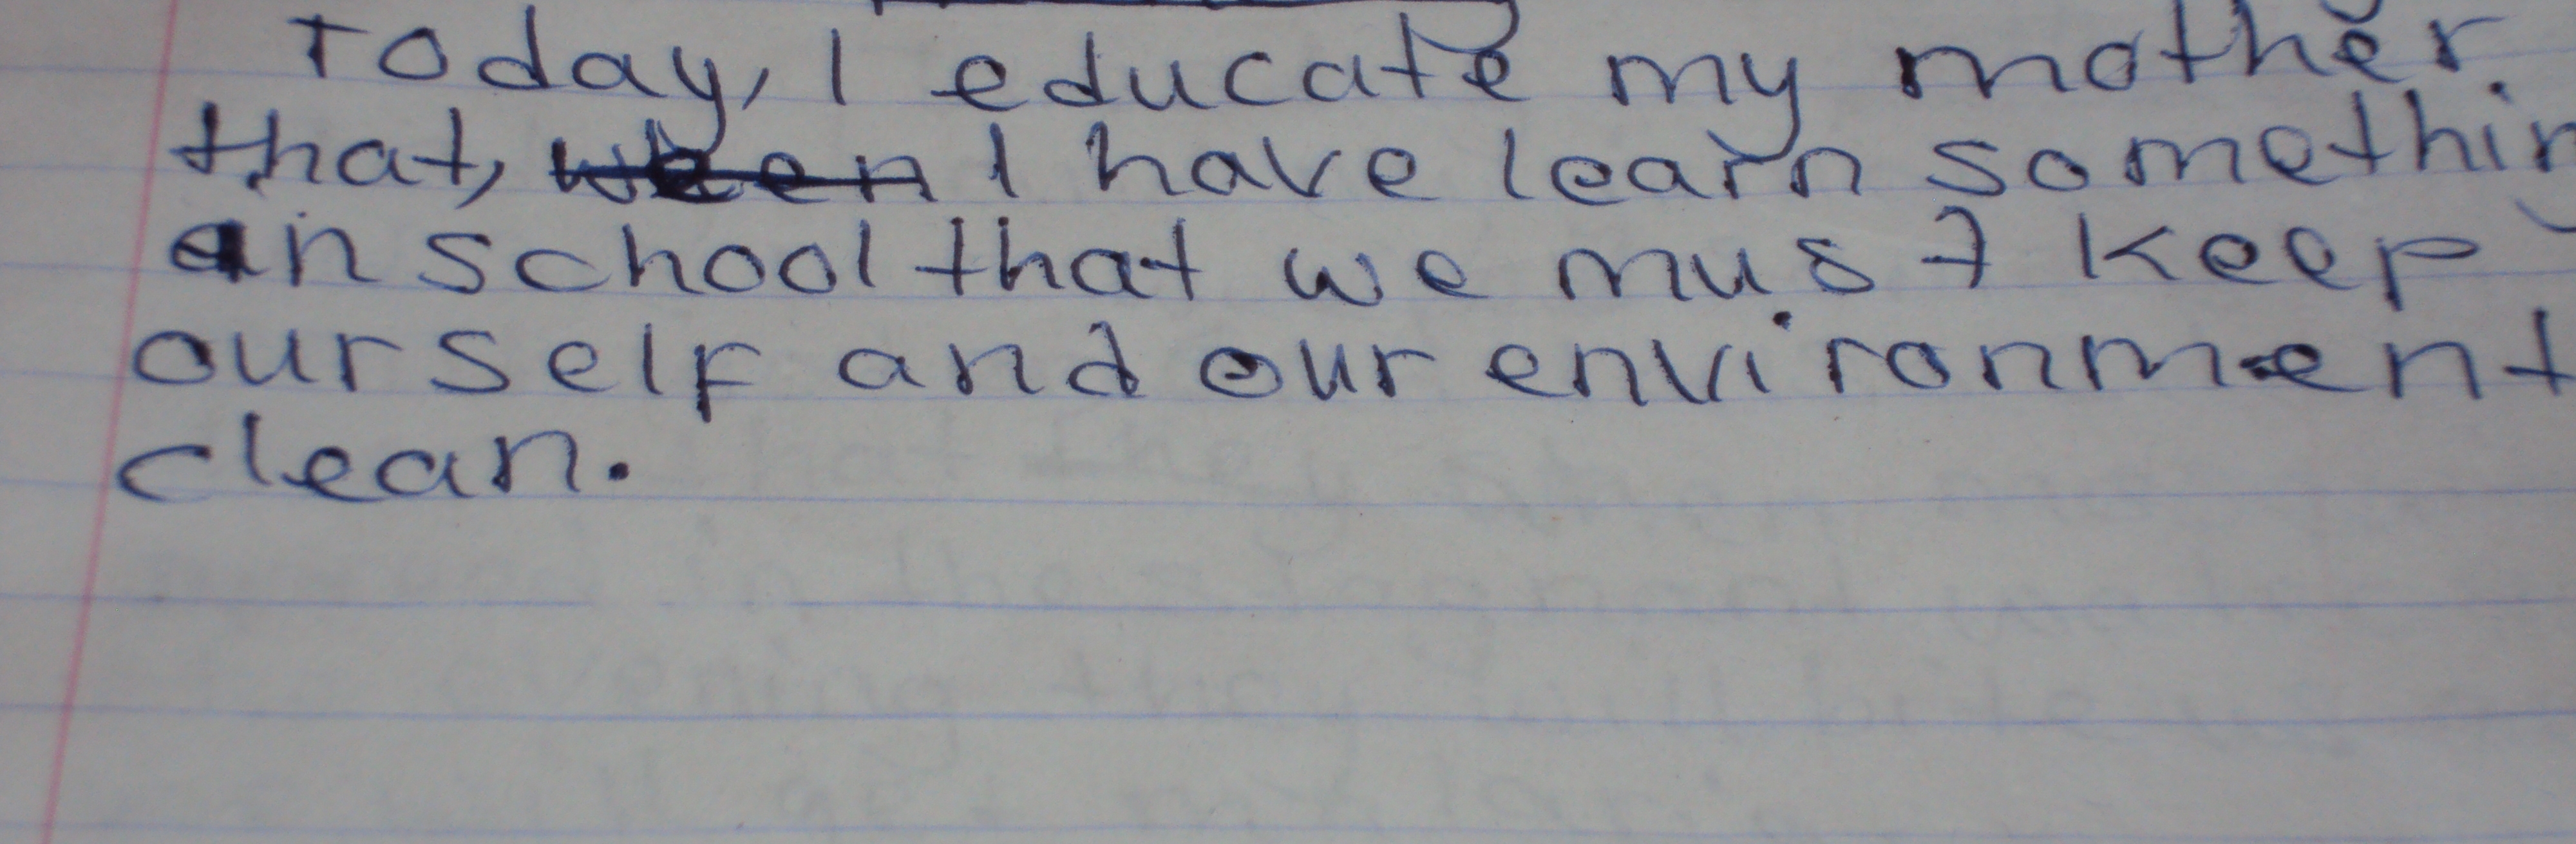 Today, I educate my mother.
that, when I have learn somethin
in school that we must keep
ourself and our environment
clean.